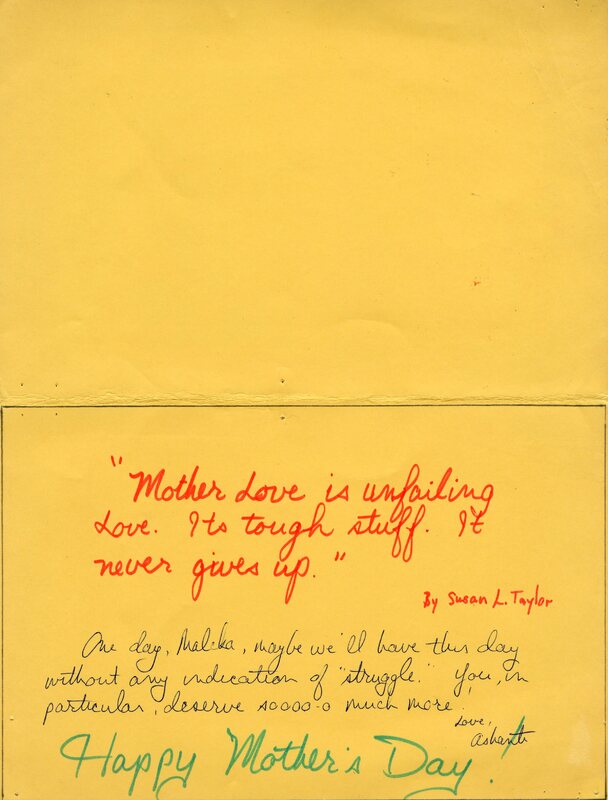 "Mother Love is unfailing
Love. Its tough stuff. It
never gives up."
By Susan L. Taylor
One day, Maleka, maybe we'll have this day
without any indication of "struggle." You, in
particular, deserve soooo-o much more.
Love,
Ashanti
Happy Mother's Day.